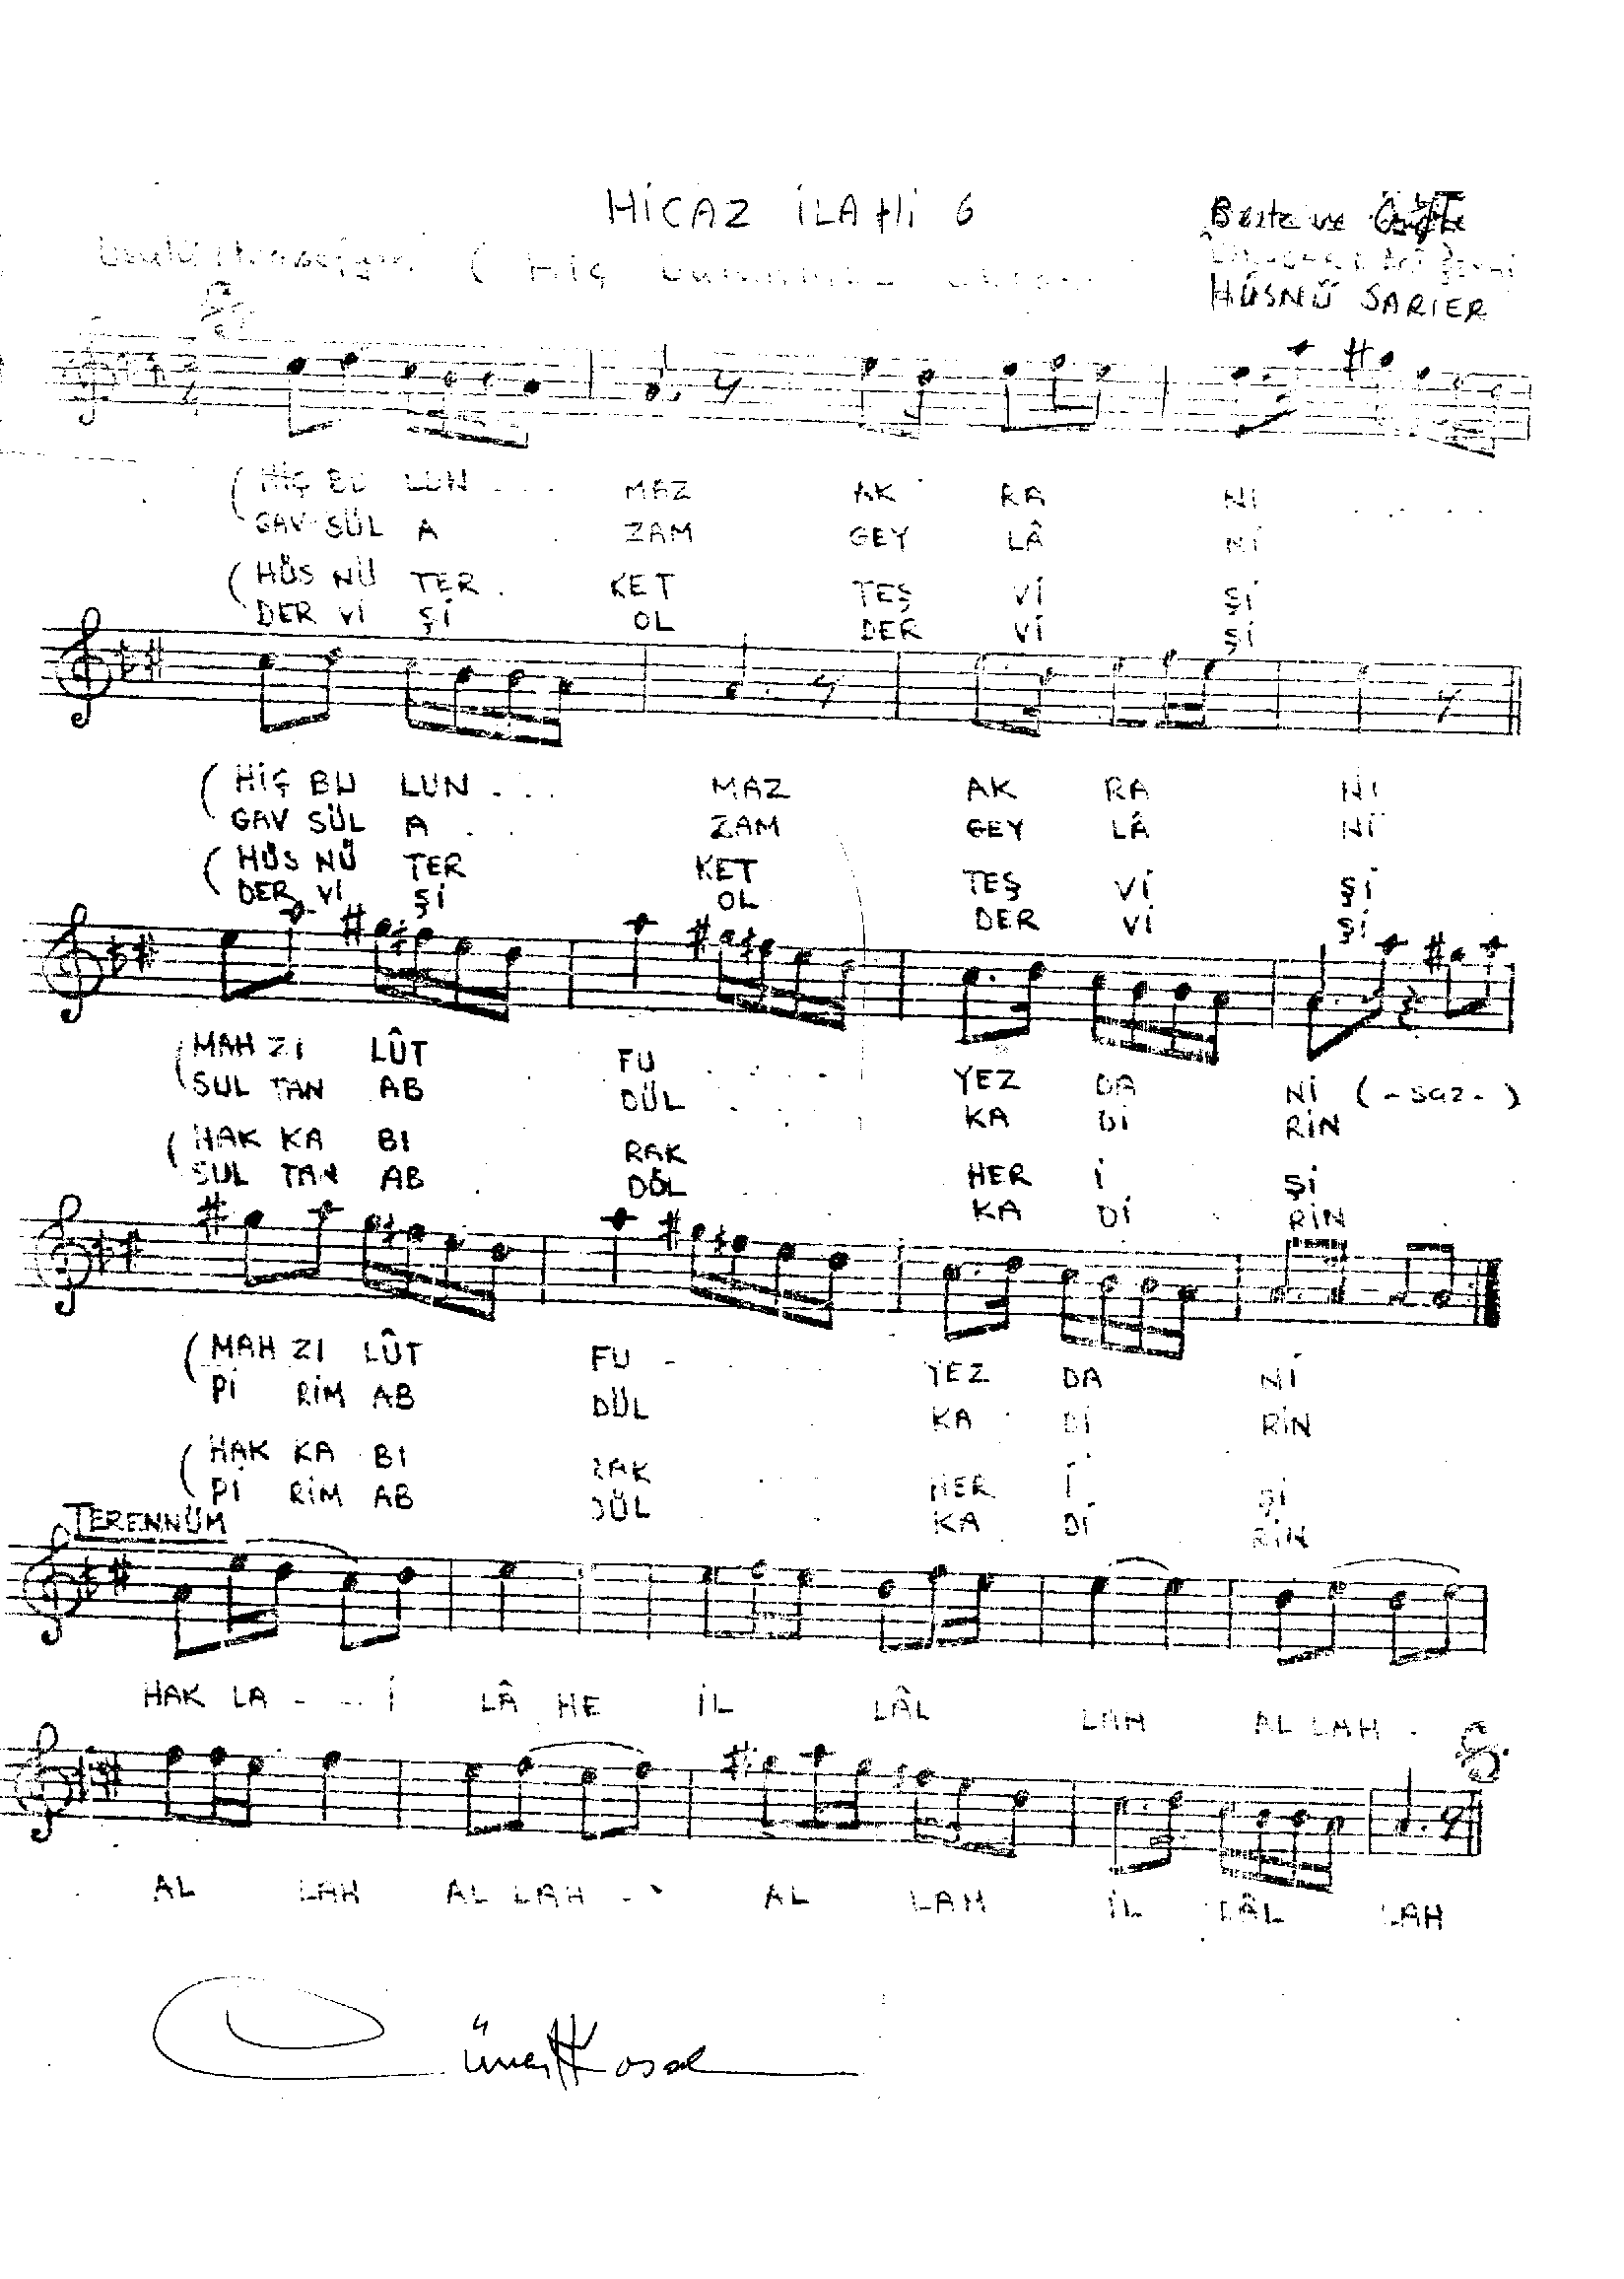 HİCAZ İLAHİ 6
Beste ve Güfte
( Hiç
HÜSNÜ SARIER
(HİÇ BU LUN . . . MAZ AK RA Nİ . . . . .
GAV SÜL A . ZAM GEY LÂ Nİ
(HÜS NÜ TER . KET TEŞ Vİ Şİ
DER Vİ Şİ OL DER Vİ Şİ
(HİÇ BU LUN . . . MAZ AK RA Nİ
GAV SÜL A . . . ZAM GEY LÂ Nİ
(HÜS NÜ TER KET TEŞ Vİ Şİ
DER Vİ Şİ OL DER Vİ Şİ
(MAH ZI LÛT FU . . . . . YEZ DA Nİ (-saz-)
SUL TAN AB DÜL . . . . KA Dİ RİN
(HAK KA BI RAK HER İ Şİ
SUL TAN AB . DÜL . KA Dİ . RİN
(MAH ZI LÛT FU - . . . YEZ DA Nİ
Pİ RİM AB DÜL . . . KA Dİ RİN
(HAK KA BI RAK . . . HER İ Şİ
Pİ RİM AB DÜL . . . KA Dİ RİN
TERENNÜM
HAK LA - - - İ LÂ HE İL LÂL LAH AL LAH .
AL LAH AL LAH . . AL LAH İL LÂL LAH